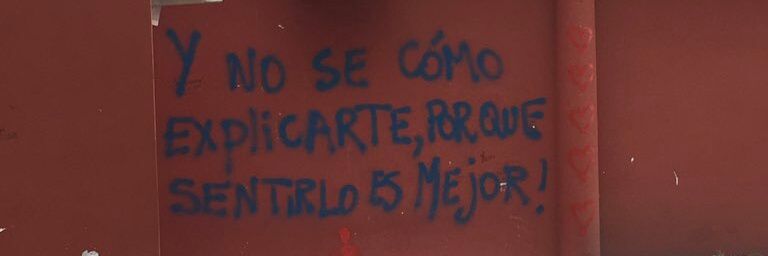 Y NO SE CÓMO
EXpliCARTE, PORQUE
SENTIRLO ES MEjOR!